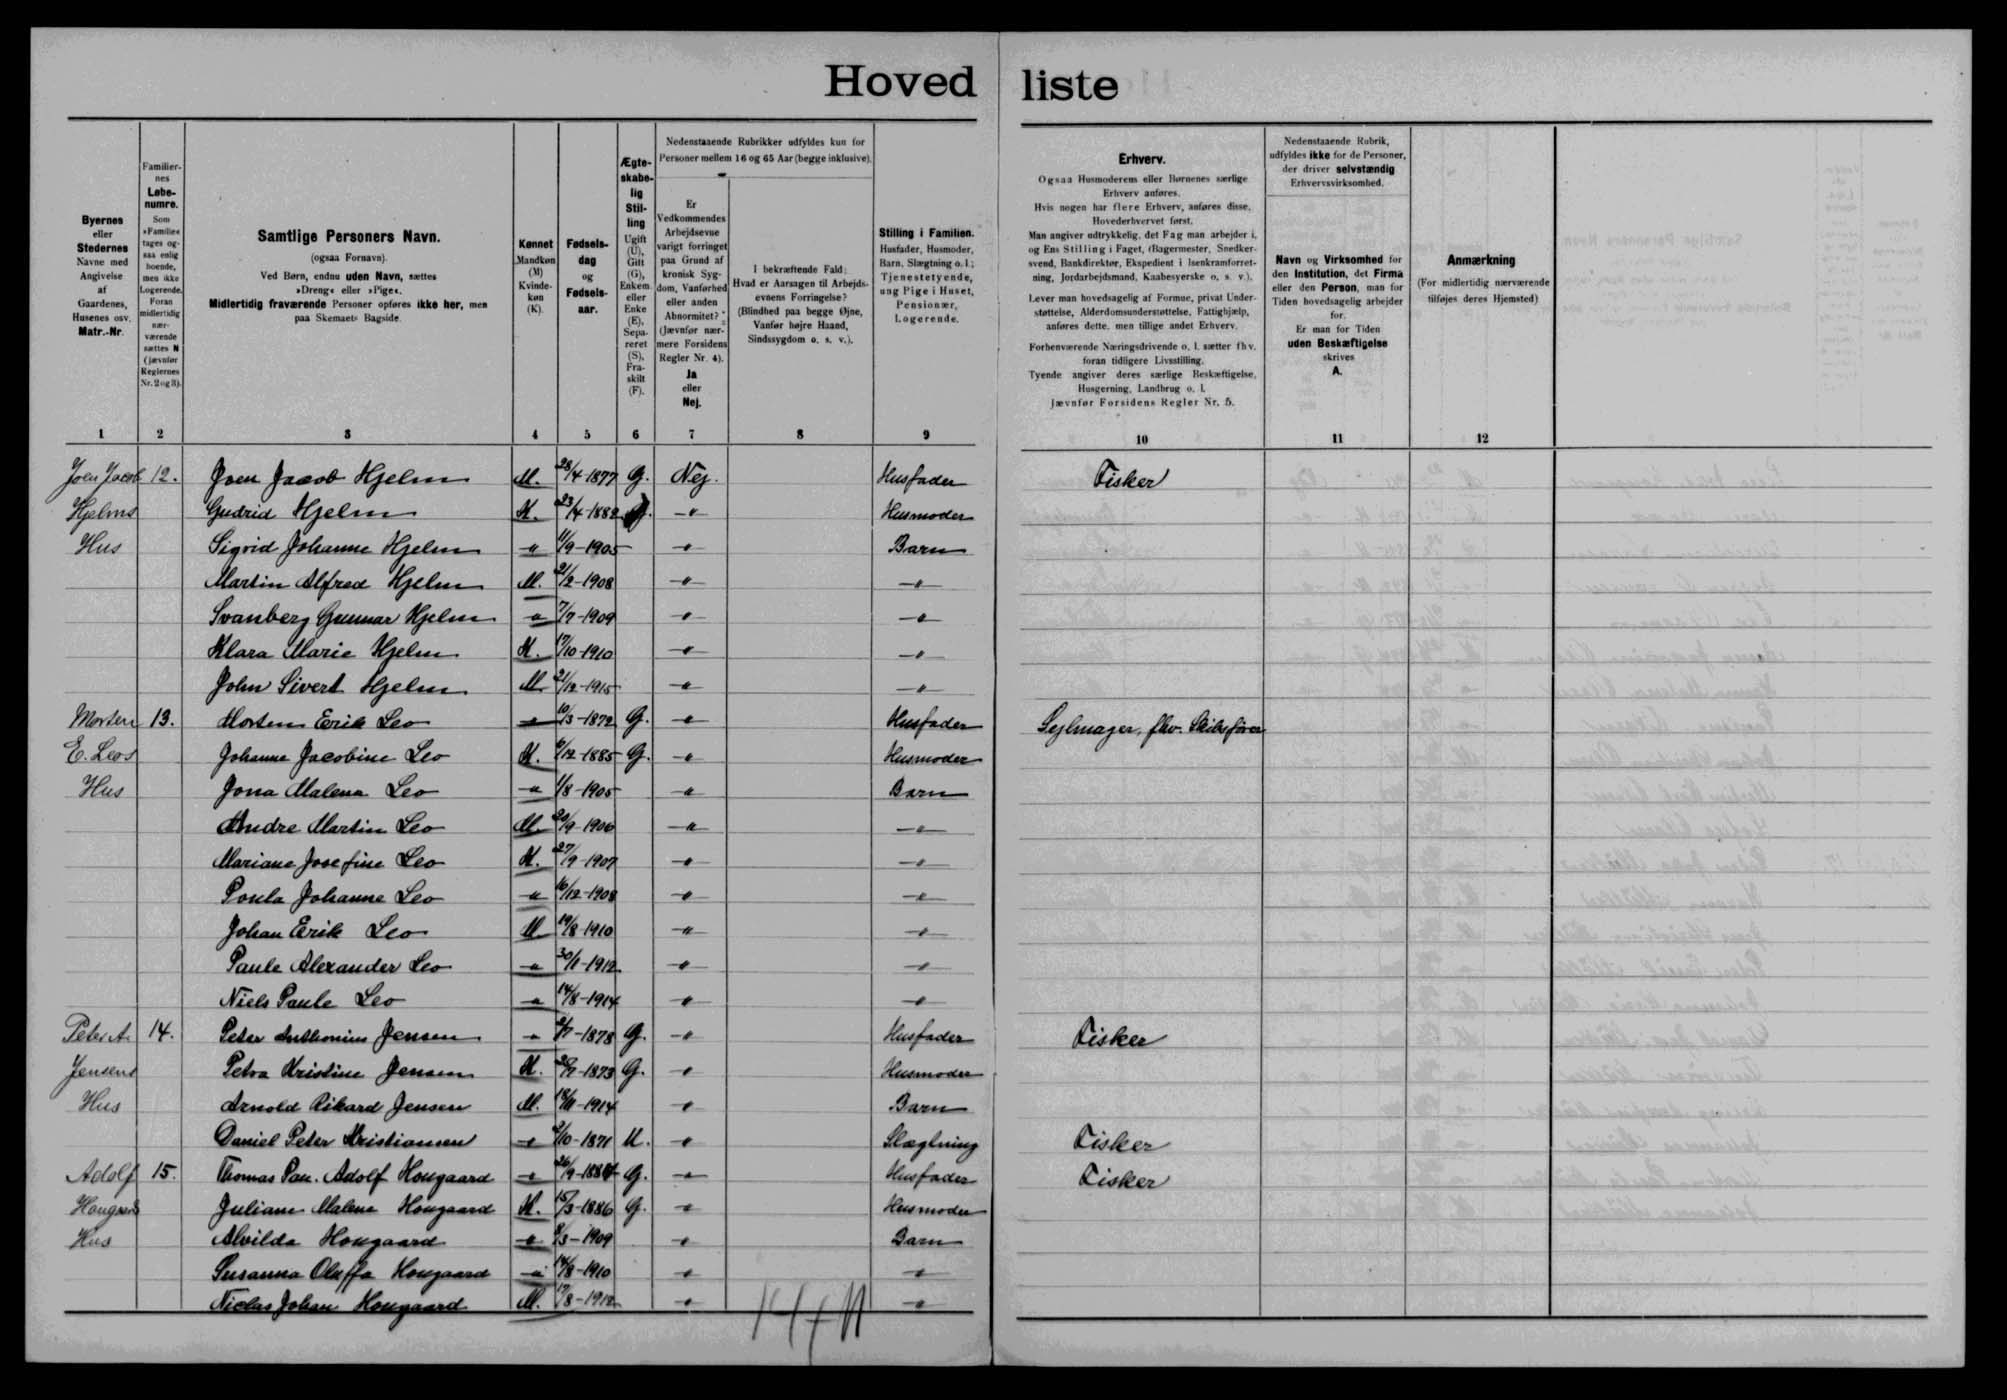 Hoved liste
Byernes
eller
Stedernes
Navne med
Angivelse
af
Gaardenes,
Husenes osv.
Matr.-Nr.
Familier-
nes
Løbe-
numre.
Som
»Familie«
tages og-
saa enlig
boende,
men ikke
Logerende.
Foran
midlertidig
nær-
værende
sættes N
(jævnfør
Reglernes
Nr. 2 og 3).
Samtlige Personers Navn.
(ogsaa Fornavn).
Ved Børn, endnu uden Navn, sættes
»Dreng« eller »Pige«.
Midlertidig fraværende Personer opføres ikke her, men
paa Skemaets Bagside.
Kønnet
Mandkøn
(M)
Kvinde-
køn
(K).
Fødsels-
dag
og
Fødsels-
aar.
Ægte-
skabe-
lig
Stil-
ling
Ugift
(U),
Gift
(G),
Enkem.
eller
Enke
(E),
Sepa-
reret
(S),
Fra-
skilt
(F).
Nedenstaaende Rubrikker udfyldes kun for
Personer mellem 16 og 65 Aar (begge inklusive).
Er
Vedkommendes
Arbejdsevne
varigt forringet
paa Grund af
kronisk Syg-
dom, Vanførhed
eller anden
Abnormitet?
(Jævnfør nær-
mere Forsidens
Regler Nr. 4).
Ja
eller
Nej.
I bekræftende Fald:
Hvad er Aarsagen til Arbejds-
evnens Forringelse?
(Blindhed paa begge Øjne,
Vanfør højre Haand,
Sindssygdom o. s. v.).
Stilling i Familien.
Husfader, Husmoder,
Barn, Slægtning o. l.;
Tjenestetyende,
ung Pige i Huset,
Pensionær,
Logerende.
Erhverv.
Ogsaa Husmoderens eller Børnenes særlige
Erhverv anføres.
Hvis nogen har flere Erhverv, anføres disse,
Hovederhvervet først.
Man angiver udtrykkelig, det Fag man arbejder i,
og Ens Stilling i Faget, (Bagermester, Snedker-
svend, Bankdirektør, Ekspedient i Isenkramforret-
ning, Jordarbejdsmand, Kaabesyerske o. s. v.).
Lever man hovedsagelig af Formue, privat Under-
støttelse, Alderdomsunderstøttelse, Fattighjælp,
anføres dette, men tillige andet Erhverv.
Forhenværende Næringsdrivende o. l. sætter fhv.
foran tidligere Livsstilling.
Tyende angiver deres særlige Beskæftigelse,
Husgerning, Landbrug o. l.
Jævnfør Forsidens Regler Nr. 5.
Nedenstaaende Rubrik,
udfyldes ikke for de Personer,
der driver selvstændig
Erhvervsvirksomhed.
Navn og Virksomhed for
den Institution, det Firma
eller den Person, man for
Tiden hovedsagelig arbejder
for.
Er man for Tiden
uden Beskæftigelse
skrives
A.
Anmærkning
(For midlertidig nærværende
tilføjes deres Hjemsted)
1 2 3 4 5 6 7 8 9 10 11 12
Joen Jacob 12. Joen Jacob Hjelm M. 28/4-1877 G. Nej. Husfader Fisker
Hjelms Gudrid Hjelm K. 23/4-1882 G. -"- Husmoder
Hus Sigrid Johanne Hjelm " 11/9-1905 -"- Barn
Martin Alfred Hjelm M. 21/2-1908 -"- -"-
Svanberg Gunnar Hjelm " 7/7-1909 -"- -"-
Klara Marie Hjelm K. 17/10-1910 -"- -"-
John Sivert Hjelm M 21/12-1915 -"- -"-
Morten 13. Morten Erik Leo " 10/3-1872 G. -"- Husfader Sejlmager, fhv. Skibsfører
E. Leos Johanne Jacobine Leo K. 6/12-1885 G. -"- Husmoder
Hus Jona Malena Leo " 1/8-1905 -"- Barn
Andre Martin Leo M. 20/9-1906 -"- -"-
Mariane Josefine Leo K. 27/9-1907 -"- -"-
Poula Johanne Leo " 16/12-1908 -"- -"-
Johan Erik Leo M 19/8-1910 -"- -"-
Paule Alexander Leo " 30/1-1912 -"- -"-
Niels Paule Leo " 14/8-1914 -"- -"-
Peter A. 14. Peter Anthonius Jensen " 2/7-1878 G. -"- Husfader Fisker
Jensens Petra Kristine Jensen K. 1873 G. -"- Husmoder
Hus Arnold Rikard Jensen M. 18/11-1914 -"- Barn
Daniel Peter Kristiansen " 2/10-1871 U. -"- Slægtning Fisker
Adolf 15. Thomas Pau. Adolf Hougaard " 26/9-1884 G. -"- Husfader Fisker
Hougaards Juliane Malene Hougaard K. 15/3-1886 G. -"- Husmoder
Hus Alvilda Hougaard " 8/3-1909 -"- Barn
Susanna Oluffa Hougaard " 14/8-1910 -"- -"-
Niclas Johan Hougaard M. 17/8-1912 -"- -"-